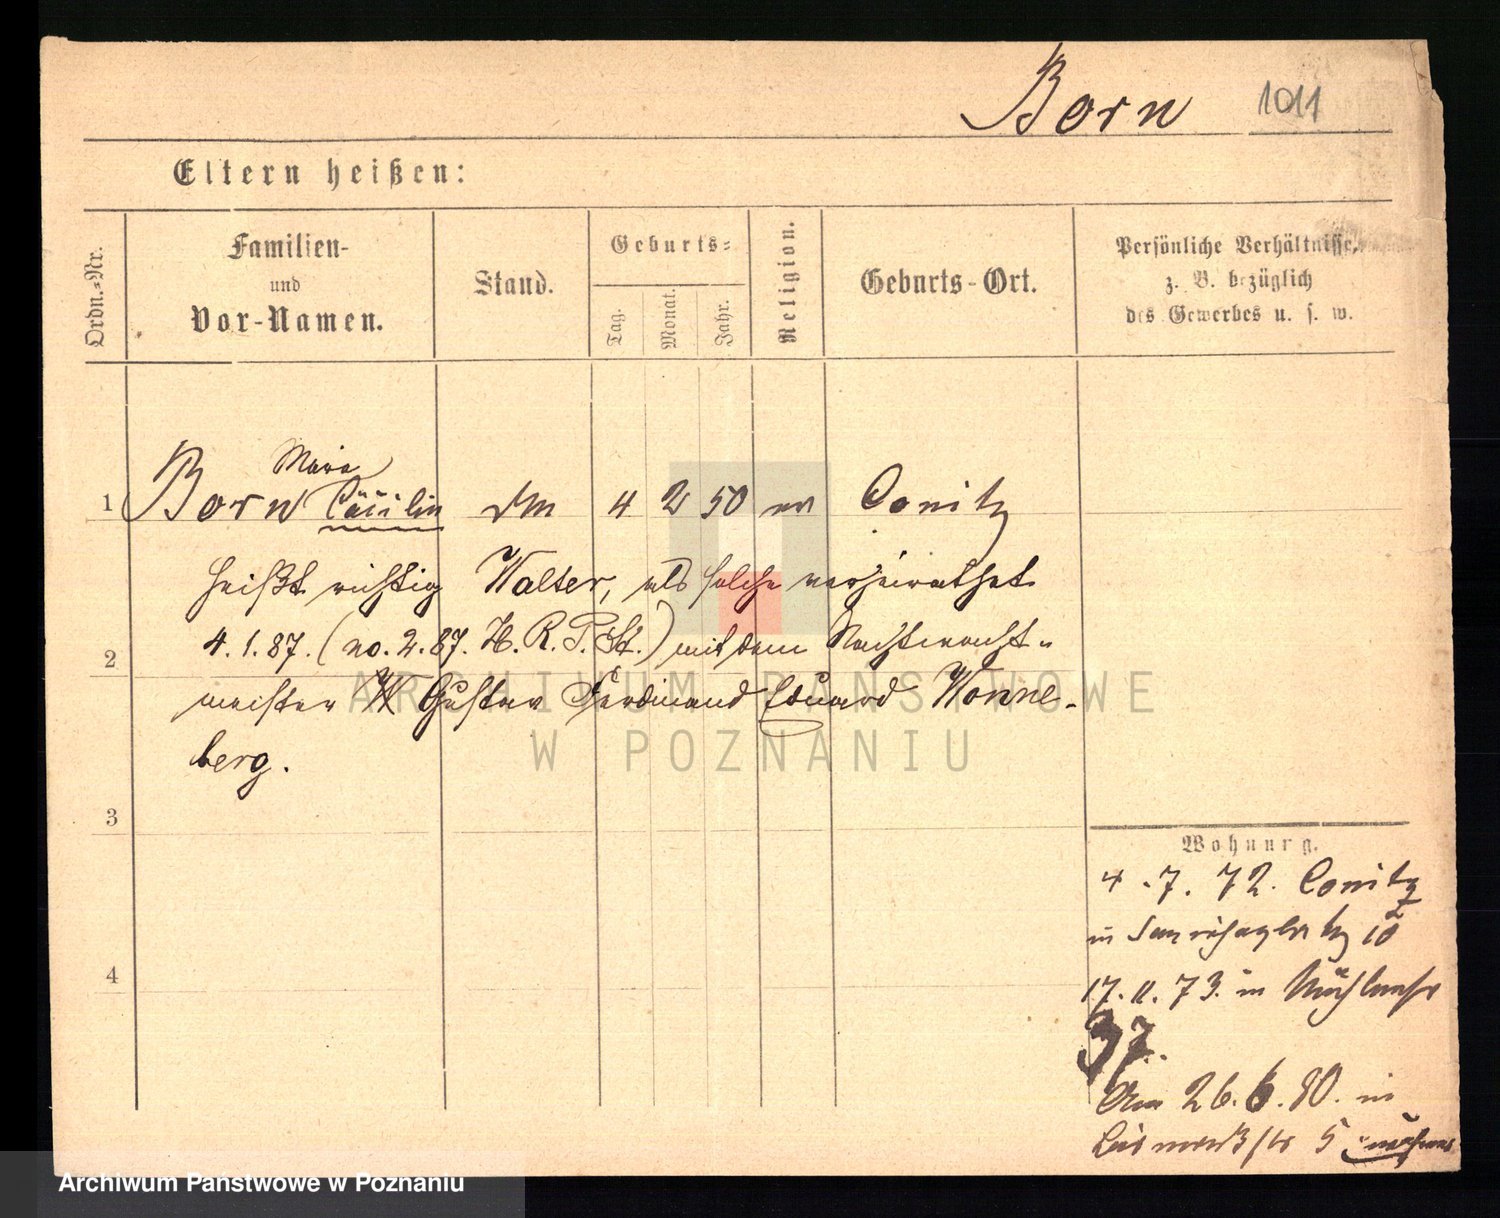 Born 1011
Eltern heißen:
Ordn.-Nr.
Familien-
und
Vor-Namen.
Stand.
Geburts-
Tag.
Monat.
Jahr.
Religion.
Geburts-Ort.
Persönliche Verhältnisse,
z. B. bezüglich
des Gewerbes u. s. w.
Maria
1 Born Cäcilie 4 2 50 Conitz
heißt richtig Walter, als solche verheirathet
4.1.87. (no. 2. 87. H. R. P. St.) mit dem Nachtwacht-
2
meister W Gustav Ferdinand Eduard Wonne-
berg.
3
4
Wohnung.
4.7.72. Conitz
in 10
17.11.73. in Mühlenstr
37.
Am 26.6.80. in
Bismarckstr 5
ARCHIWUM PAŃSTWOWE
W POZNANIU
Archiwum Państwowe w Poznaniu